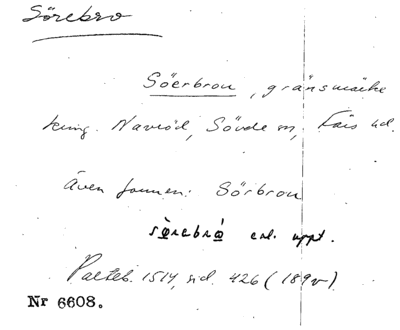 Sörebro
Söerbrou, gränsmärke
kring Naveröd, Sövde sn, Färs hd.
Även formen: Sörbrou
sörebrå enl. uppt.
Palteb. 1514, sid. 426 (189v).
Nr 6608.